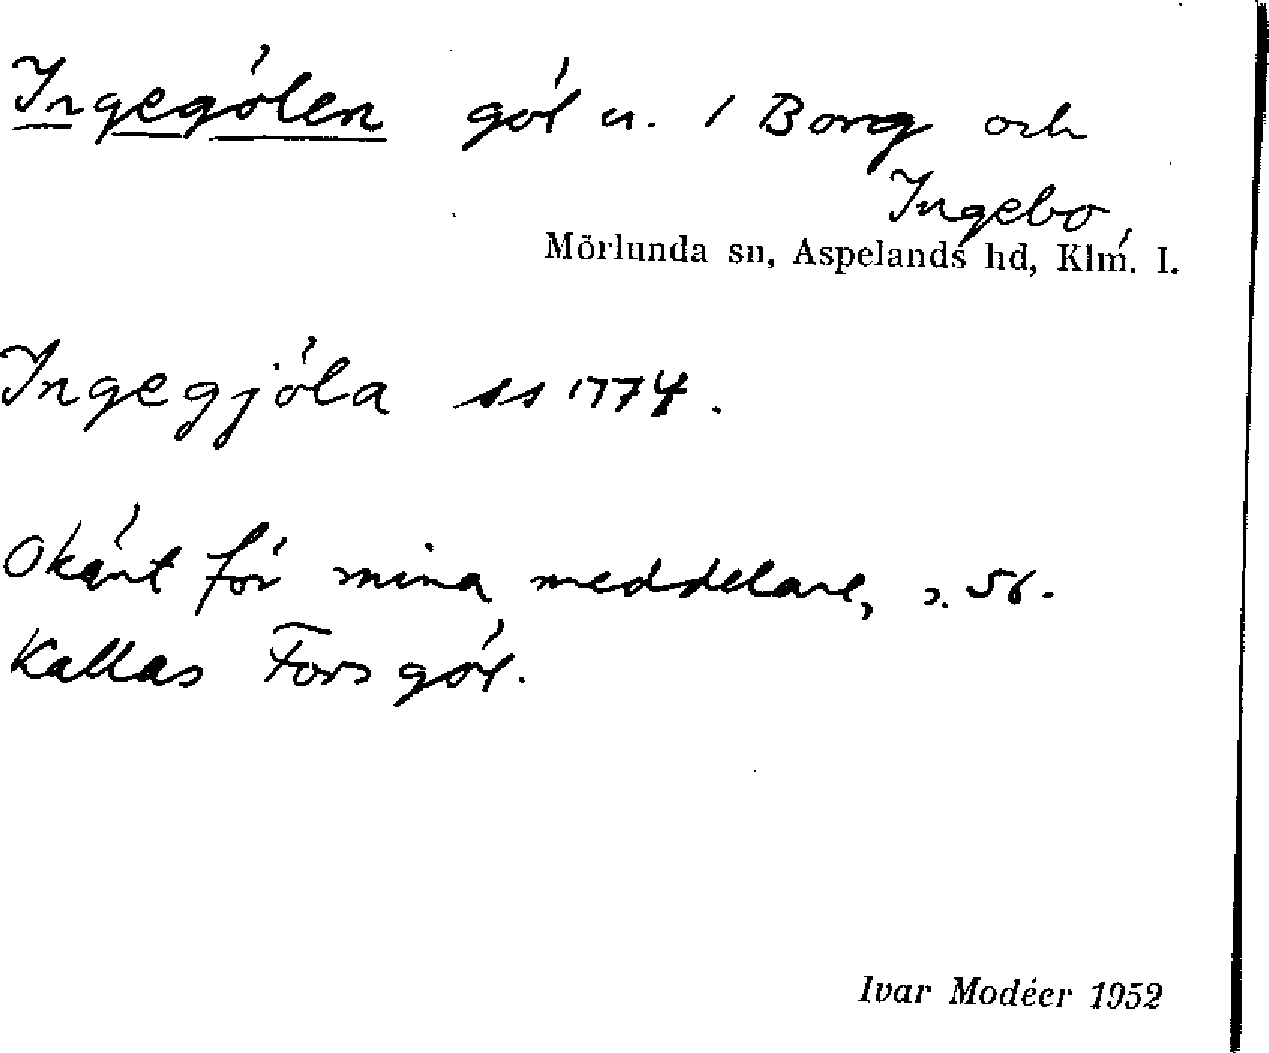 Ingegölen göl u. / Borg och
Ingebo,
Mörlunda sn, Aspelands hd, Klm. l.
Ingegjöla ss 1774.
Okänt för mina meddelare, s. 56.
Kallas Forsgöl.
Ivar Modéer 1952